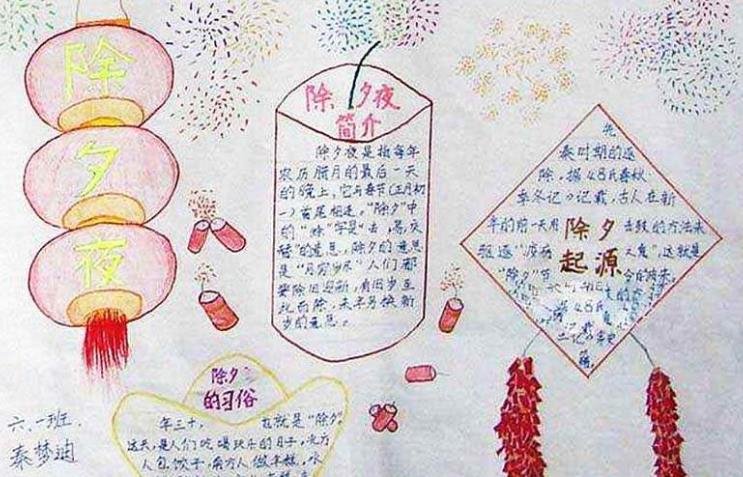 除
夕
夜
除夕夜
简介
除夕夜是指每年
农历腊月的最后一天
的晚上,它与春节(正月初
一)首尾相连。“除夕”中
的“除”字是“去,易,交
替”的意思,除夕的意思
是“月穷岁尽”人们都
要除旧迎新,有旧岁至
此而除,来年另换新
岁的意思。
先
秦时期的逐
除,据
记》记载,古人在新
年的前一天用
击鼓的方法来
驱逐“疫疠
之鬼”,这就是
“除夕”节
除夕
起源
除夕
的习俗
年三十,
也就是“除夕”
这天,是人们吃喝玩乐的日子,北方
人包饺子,南方人做年糕,水
六.一班.
秦梦迪